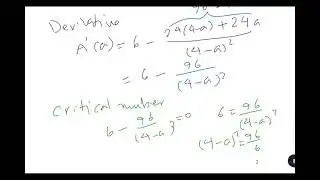 Derivative
A'(a) = 6 - 24(4-a) + 24a / (4-a)²
= 6 - 96 / (4-a)²
Critical number
6 - 96 / (4-a)² = 0
6 = 96 / (4-a)²
(4-a)² = 96 / 6